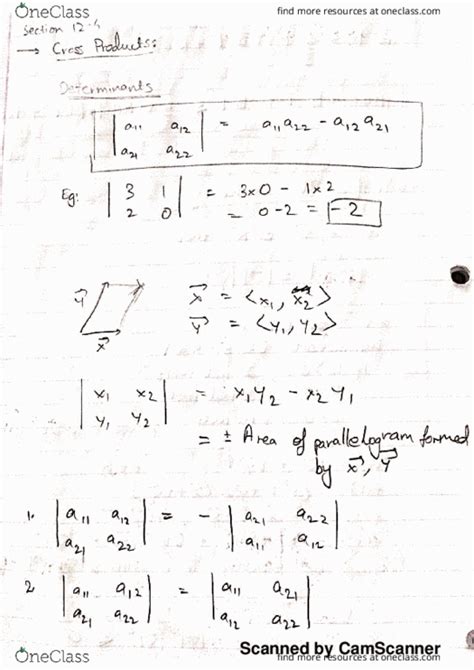 OneClass
find more resources at oneclass.com
Section 12-4
→ Cross Products:
Determinants
| a11 a12 | = a11a22 - a12a21
| a21 a22 |
Eg: | 3 1 | = 3×0 - 1×2
| 2 0 | = 0-2 = -2
y⃗ x⃗ = <x1, x2>
x⃗ y⃗ = <y1, y2>
| x1 x2 | = x1y2 - x2y1
| y1 y2 |
= ± Area of parallelogram formed
by x⃗, y⃗
1. | a11 a12 | = - | a21 a22 |
| a21 a22 | | a11 a12 |
2 | a11 a12 | = | a11 a21 |
| a21 a22 | | a12 a22 |
Scanned by CamScanner
OneClass
find more resources at oneclass.com